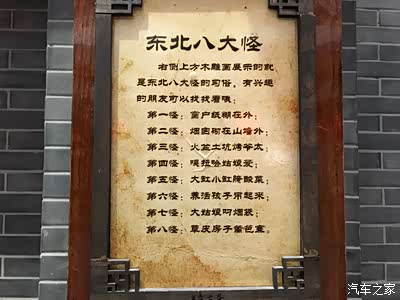 东北八大怪
右侧上方木雕画展示的就
是东北八大怪的习俗，有兴趣
的朋友可以找找看哦：
第一怪：窗户纸糊在外；
第二怪：烟囱砌在山墙外；
第三怪：火盆土坑烤爷太；
第四怪：嘎拉哈姑娘爱；
第五怪：大缸小缸腌酸菜；
第六怪：养活孩子吊起来；
第七怪：大姑娘叼烟袋；
第八怪：草皮房子篱笆寨。
汽车之家